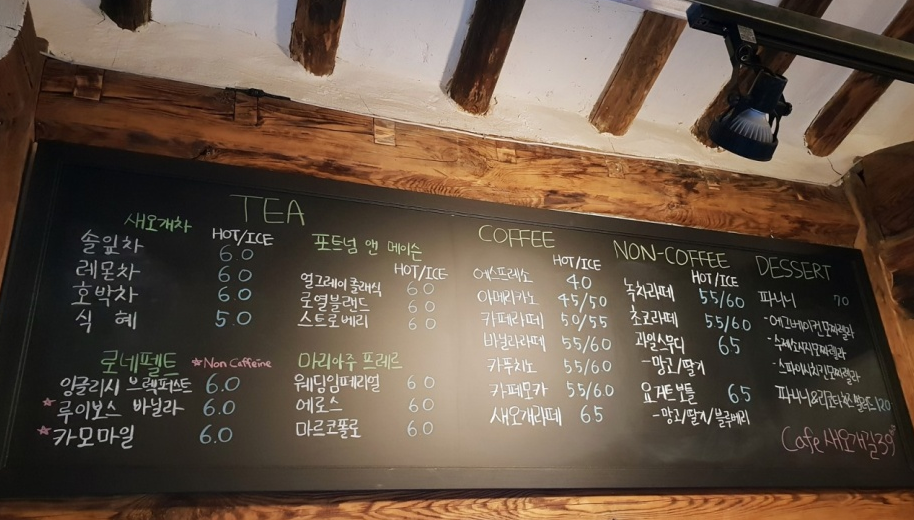 TEA
새오개차
HOT/ICE
솔잎차 6.0
레몬차 6.0
호박차 6.0
식 혜 5.0
로네펠트 *Non Caffeine
잉글리시 브렉퍼스트 6.0
*루이보스 바닐라 6.0
*카모마일 6.0
포트넘 앤 메이슨
HOT/ICE
얼그레이클래식 6.0
로열블랜드 6.0
스트로베리 6.0
마리아주 프레르
웨딩임페리얼 6.0
에로스 6.0
마르코폴로 6.0
COFFEE
HOT/ICE
에스프레소 40
아메리카노 45/50
카페라떼 50/55
바닐라라떼 55/60
카푸치노 55/60
카페모카 55/60
새오개라떼 65
NON-COFFEE
HOT/ICE
녹차라떼 55/60
초코라떼 55/60
과일스무디 65
-망고/딸기
요거트보틀 65
-망고/딸기/블루베리
DESSERT
파니니 70
-에그베이컨모짜렐라
-수제소시지모짜렐라
-스파이시치킨모짜렐라
파니니&리코타치즈샐러드 120
Cafe 새오개길39